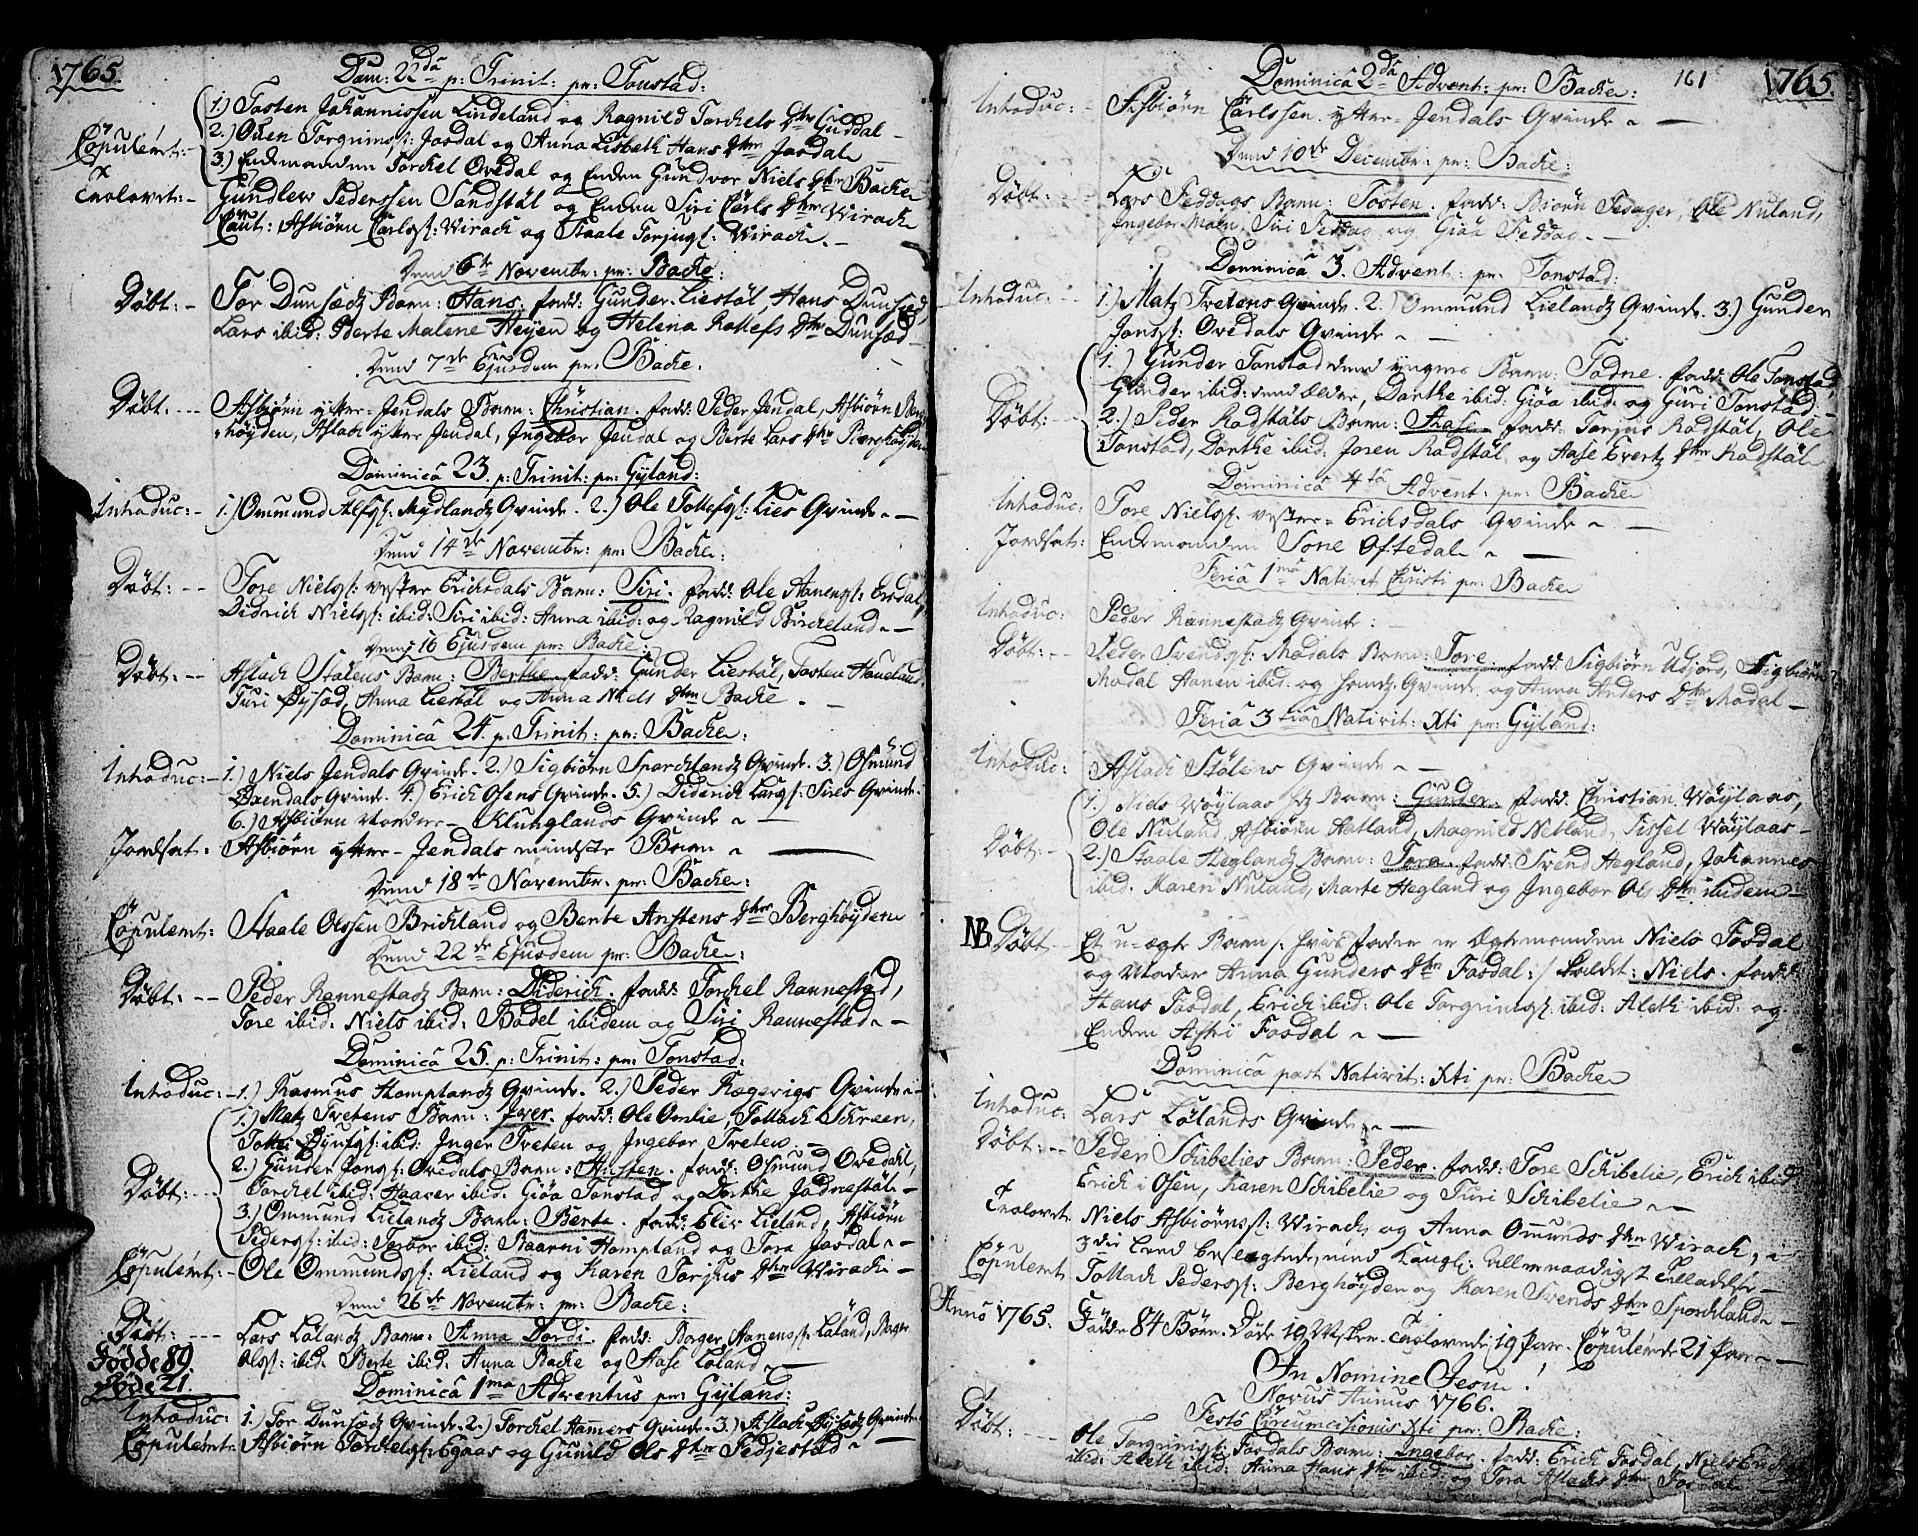 1765.
Dom: 22da p: Trinit: pr: Tonstad:
1.) Tosten Johannissen Lindeland og Ragnild Torckels Dtr Guddal
Copulerit: 2.) Oven Torgrims: Josdal og Anna Lisbeth Hans Dtr Josdal
3.) Enckemanden Torckel Ovedal og Encken Gundvor Niels Dtr Backe
Trolovet: Gundlew Pederssen Sandstøl og Encken Siri Carls Dtr Wirach
Caut: Asbiørn Carls: Wirach og Staale Torjus: Wirach.
Dend 6te Novembr: pr: Backe:
Døbt: Tor Dunsæds Barn: Hans. fadd: Gunder Liestøl, Hans Dunsæd,
Lars ibid: Berte Malene Heyen og Helena Rollefs Dtr Dunsæd
Dend 7de Ejusdem pr: Backe.
Døbt. Asbiørn ytter-Jendals Barn: Christian. fadd: Peder Jendal, Asbiørn Berg-
høyden, Aslach ytter Jendal, Ingebor Jendal og Berte Lars Dtr Berghøyden
Dominica 23. p: Trinit: pr: Gyland:
Introduc: 1.) Ommund Alfs: Mydlands Qvinde. 2.) Ole Tollefs: Lies Qvinde.
Dend 14de Novembr: pr: Backe:
Døbt: Tore Niels: vester Erichsdals Barn: Siri. fadd: Ole Hanens: Ersdal
Didrich Niels: ibid: Siri ibid: Anna ibid: og Ragnild Bircheland
Dend 16 Ejusdem pr: Backe:
Døbt: Aslach Stølens Barn: Berthe. fadd: Gunder Liestøl, Tosten Haueland
Turi Øysæd, Anna Liestøl og Anna Niels Dtr Backe.
Dominica 24. p: Trinit: pr: Backe:
Introduc: 1.) Niels Jendals Qvinde. 2.) Sigbiørn Sporcklands Qvinde. 3.) Osmund
Øxendals Qvinde. 4.) Erich Osens Qvinde. 5.) Diderich Lars: Sires Qvinde.
6.) Asbiørn Nordre-Klunglands Qvinde
Jordsat: Asbiørn ytter-Jendals mindste Barn
Dend 18de Novembr: pr: Backe:
Copulerit: Staale Olssen Brickland og Berte Anstens Dtr Berghøyden
Dend 22de Ejusdem pr: Backe:
Døbt: Peder Rannestads Barn: Diderich. fadd: Torckel Rannestad,
Tore ibid: Niels ibid: Bodel ibidem og Siri Rannestad
Dominica 25. p: Trinit: pr: Tonstad:
Introduc: 1.) Rasmus Homplands Qvinde. 2.) Peder Rægevigs Qvinde
1.) Matz Tvetens Barn: Iver. fadd: Ole Omlie, Tollach Skreen,
ibid: Inger Tveten og Ingebor Tveten.
2.) Gunder Jons: Ovedals Barn: Austen. fadd: Osmund Ovedahl,
Døbt: Torckel ibid: Haaver ibid. Giøa Tonstad og Dorthe Jodnestøl
3.) Ommund Lielands Barn: Berte. fadd: Elev Lieland, Asbiørn
Peders: ibid: Torbor ibid: Raanni Hompland og Tora Josdal
Copulerit: Ole Ommunds: Lieland og Karen Torjus Dtr Wirach
Dend 26de Novembr: pr: Backe:
Døbt: Lars Lølands Barn: Anna Dordi. fadd: Borger Hanens: Løland, Borger
Ols: ibid. Berte ibid: Anna Backe og Aase Løland
Fødde 89.
Døde 21.
Dominica 1ma Adventus pr: Gyland:
Introduc: 1.) Tor Dunsæds Qvinde. 2.) Torckel Hamers Qvinde. 3.) Aslach Qvinde.
Copulerit: Asbiørn Torckels: Egaas og Gunild Ols Dtr Fedjestad
161 1765.
Dominica 2da Advent: pr: Backe:
Introduc: Asbiørn Carlssen ytter-Jendals Qvinde
Dend 10de Decembr: pr: Backe:
Døbt: Lars Feddogs Barn: Tosten. fadd: Biørn Tesager, Ole Nuland,
Ingebor Moen, Siri Feddog og Giøa Feddog.
Dominica 3. Advent: pr: Tonstad:
Introduc: 1.) Matz Tvetens Qvinde. 2.) Ommund Lielands Qvinde. 3.) Gunder
Jons: Ovedals Qvinde
1.) Gunder Tonstad dend yngres Barn: Todne. fadd: Ole Tonstad,
Gunder ibid: dend ældre, Dorthe ibid: Giøa ibid: og Guri Tonstad:
Døbt: 2.) Peder Rodstøls Barn: Aase. fadd: Torjus Rodstøl, Ole
Tonstad, Dorthe ibid: Joren Rodstøl og Aase Evertz Dtr Rodstøl
Dominica 4ta Advent: pr: Backe
Introduc: Tore Niels: vester-Erichsdals Qvinde
Jordsat: Enckemanden Tone Oftedal
Feria 1ma Nativit Christi pr: Backe
Introduc: Peder Rannestads Qvinde:
Døbt: Peder Svends: Modals Barn: Tore. fadd: Sigbiørn Udjord, Sigbiørn
Modal Hanen ibid: og hands Qvinde og Anna Anders Dtr Modal
Feria 3tia Nativit: Xti pr: Gyland:
Introduc: Aslach Stølens Qvinde
1.) Niels Wøylaas Barn: Gunder. fadd: Christian Wøylaas,
Ole Nuland, Asbiørn Hatland, Magnild Netland, Sissel Wøylaas
Døbt: 2.) Staale Heglands Barn: Tora. fadd: Svend Hegland, Johannes
ibid. Karen Nuland, Marte Hegland og Ingebor Ols Dtr ibidem
NB Døbt Et u-ægte Barn /: hvis fader er Ægtemanden Niels Josdal
og Moder Anna Gunders Dtr Josdal :/ kaldet: Niels. fadd:
Hans Josdal, Erich ibid: Ole Torgrims: ibid: Aleth ibid: og
Encken Astri Josdal
Dominica post Nativit: Xti pr: Backe
Introduc: Lars Lølands Qvinde
Døbt: Peder Schibelies Barn: Peder. fadd: Tore Schibelie, Erich ibid
Erich i Osen, Karen Schibelie og Turi Schibelie
Trolovet Niels Asbiørns: Wirach og Anna Omunds Dtr Wirach, i
3die Leed beslegtede, med Kongl: allernaadigst Tilladelse
Copulerit Tollach Peders: Berghøyden og Karen Svends Dtr Sporckland
Anno 1765. Fødde 84 Børn. Døde 19 Trolovede 19 Par. Copulerede 21 Par
In Nomine Jesu!
Novus Annus 1766.
Festo Circumcisionis Xti pr: Backe:
Døbt: Ole Torgrims: Josdals Barn: Ingebor. fadd: Erich Josdal, Niels
ibid: Aleth ibid: Anna Hans Dtr ibid: og Tora Aslachs Dtr Josdal